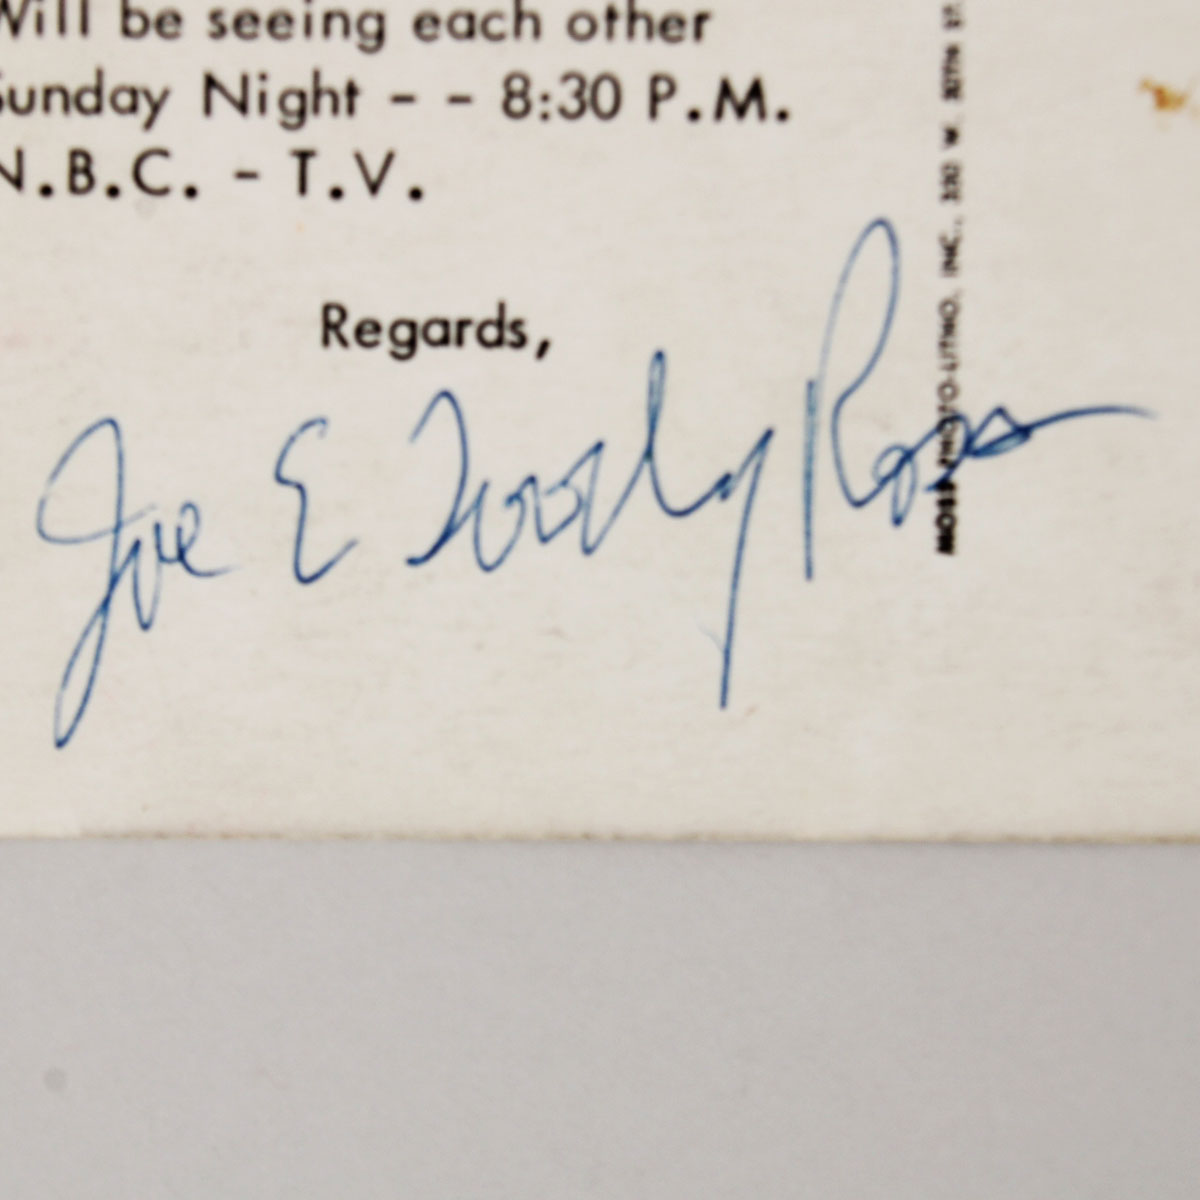 Will be seeing each other
Sunday Night - - 8:30 P.M.
N.B.C. - T.V.
Regards,
Joe E Toody Ross
MOSS PHOTO-LITHO, INC., 330 W. 30TH ST.